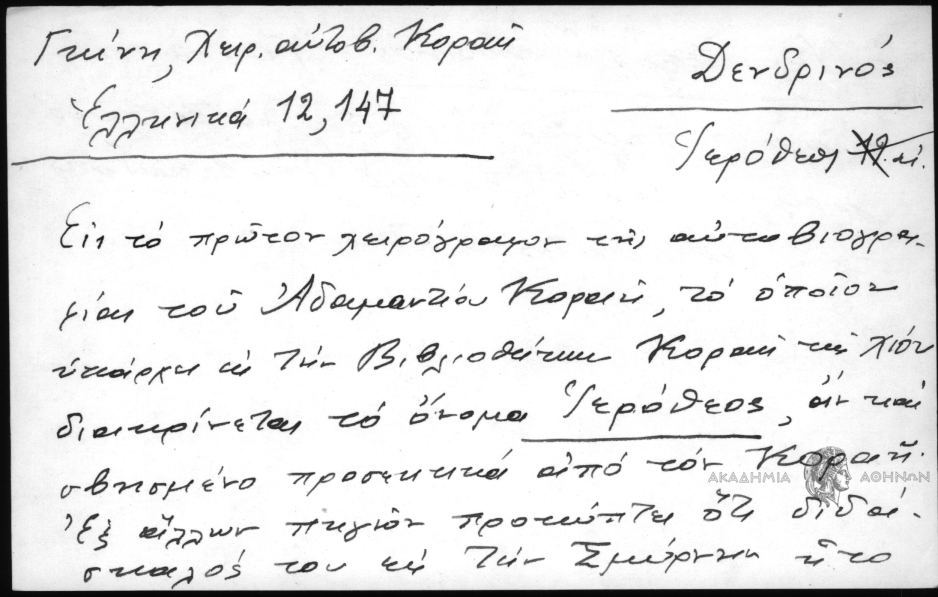 Γκίνη, Χειρ. αὐτοβ. Κοραῆ
Δενδρινός
Ἑλληνικά 12, 147
Ἱερόθεος
Εἰς τό πρῶτον χειρόγραφον τῆς αὐτοβιογρα-
φίας τοῦ Ἀδαμαντίου Κοραῆ, τό ὁποῖον
ὑπάρχει εἰς τήν Βιβλιοθήκην Κοραῆ τῆς Χίου
διακρίνεται τό ὄνομα Ἱερόθεος, ἄν καί
σβησμένο προσεκτικά ἀπό τόν Κοραῆ.
ΑΚΑΔΗΜΙΑ ΑΘΗΝΩΝ
Ἐξ ἄλλων πηγῶν προκύπτει ὅτι διδά-
σκαλός του εἰς τήν Σμύρνην ἦτο